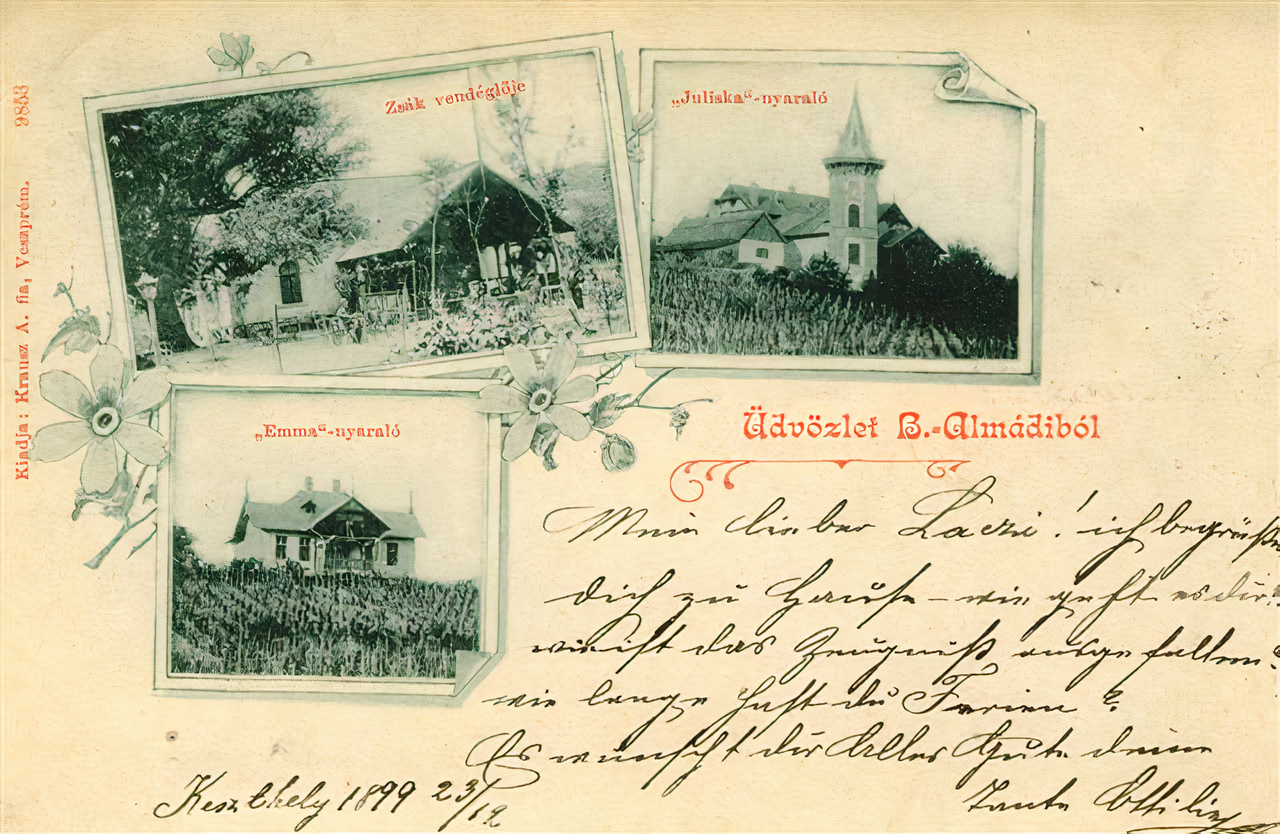 9853
Kiadja: Krausz A. fia, Veszprém.
Zsák vendéglője
„Juliska“-nyaraló
„Emma“-nyaraló
Üdvözlet B.-Almádiból
Mein lieber Laczi! ich begrüße
dich zu Hause – wie geht es dir?
wie ist das Zeugniß ausgefallen?
wie lange hast du Ferien?
Es wünscht dir Alles Gute deine
Tante Ottilie
Keszthely 1899 23/12